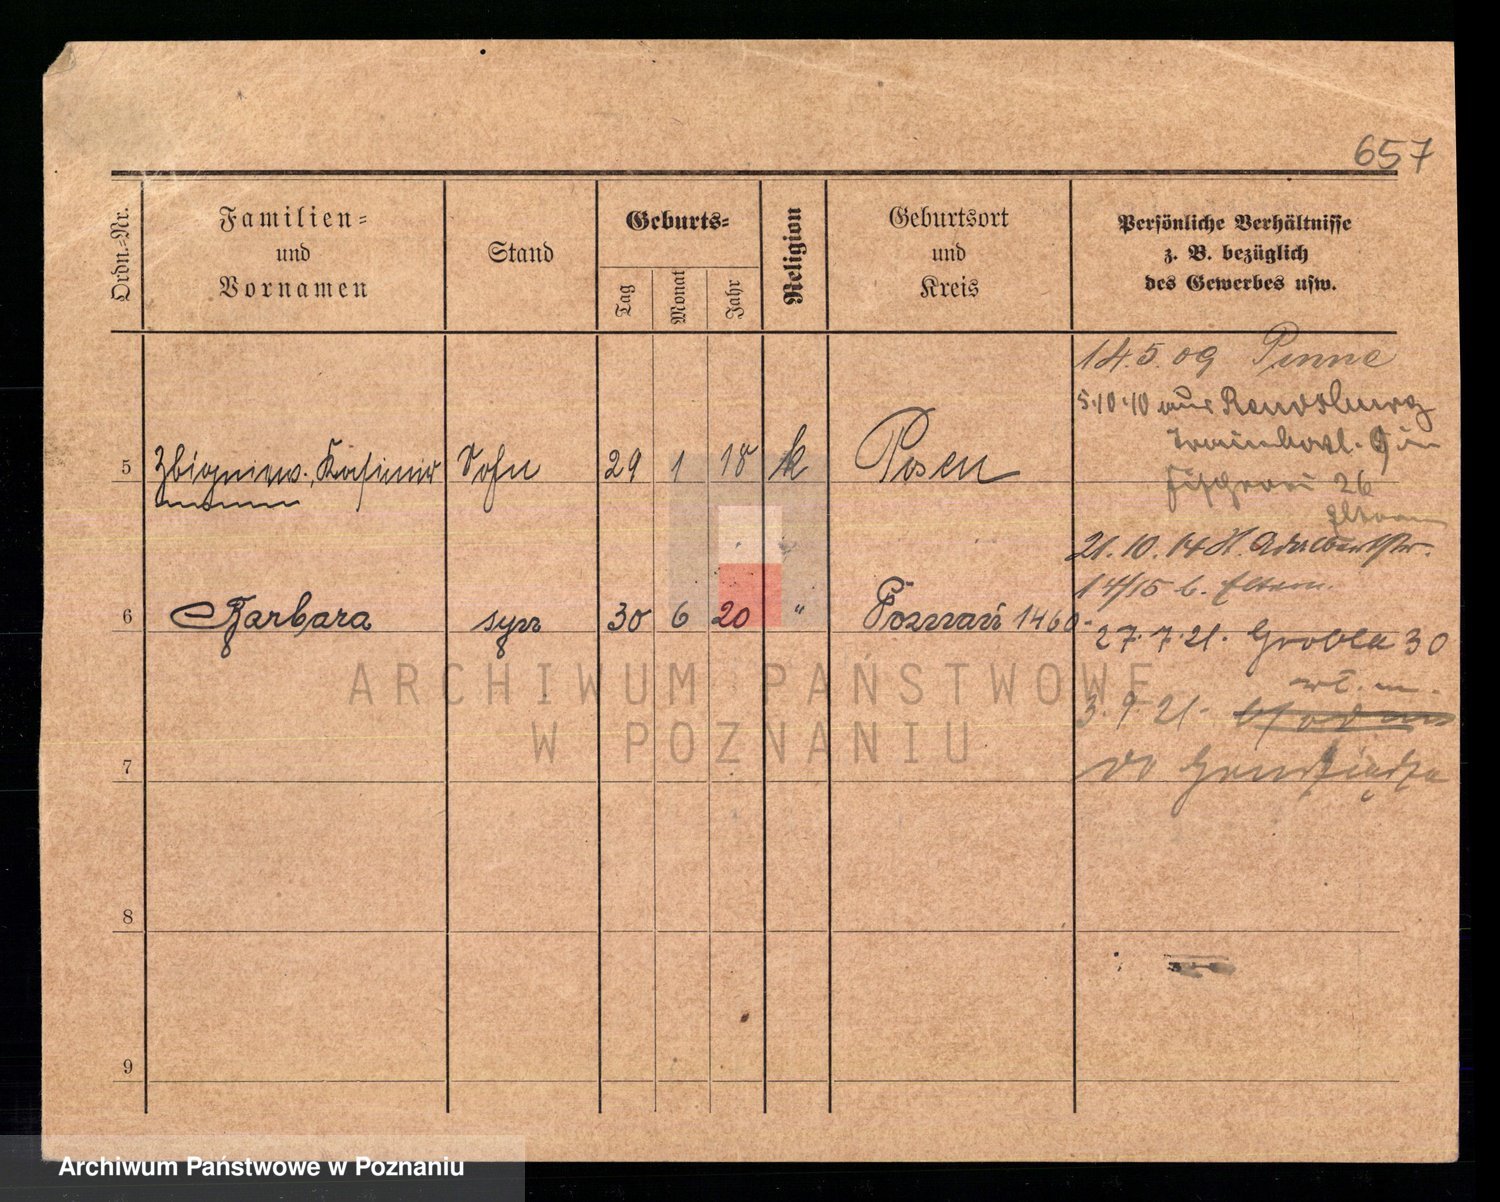 657
Ordn.-Nr.
Familien-
und
Vornamen
Stand
Geburts-
Tag
Monat
Jahr
Religion
Geburtsort
und
Kreis
Persönliche Verhältnisse
z. B. bezüglich
des Gewerbes usw.
14.5.09 Pinne
5.10.10 aus Rendsburg
5 Zbigniew, Kasimir Sohn 29 1 18 k Posen
26
Eltern
21.10.14 Adalbertstr.
14/15 b. Eltern.
6 Barbara syn 30 6 20 " Poznań 1460
27.7.21. Grobla 30
3.9.21.
do Grudziądza
7
8
9
ARCHIWUM PAŃSTWOWE
W POZNANIU
Archiwum Państwowe w Poznaniu